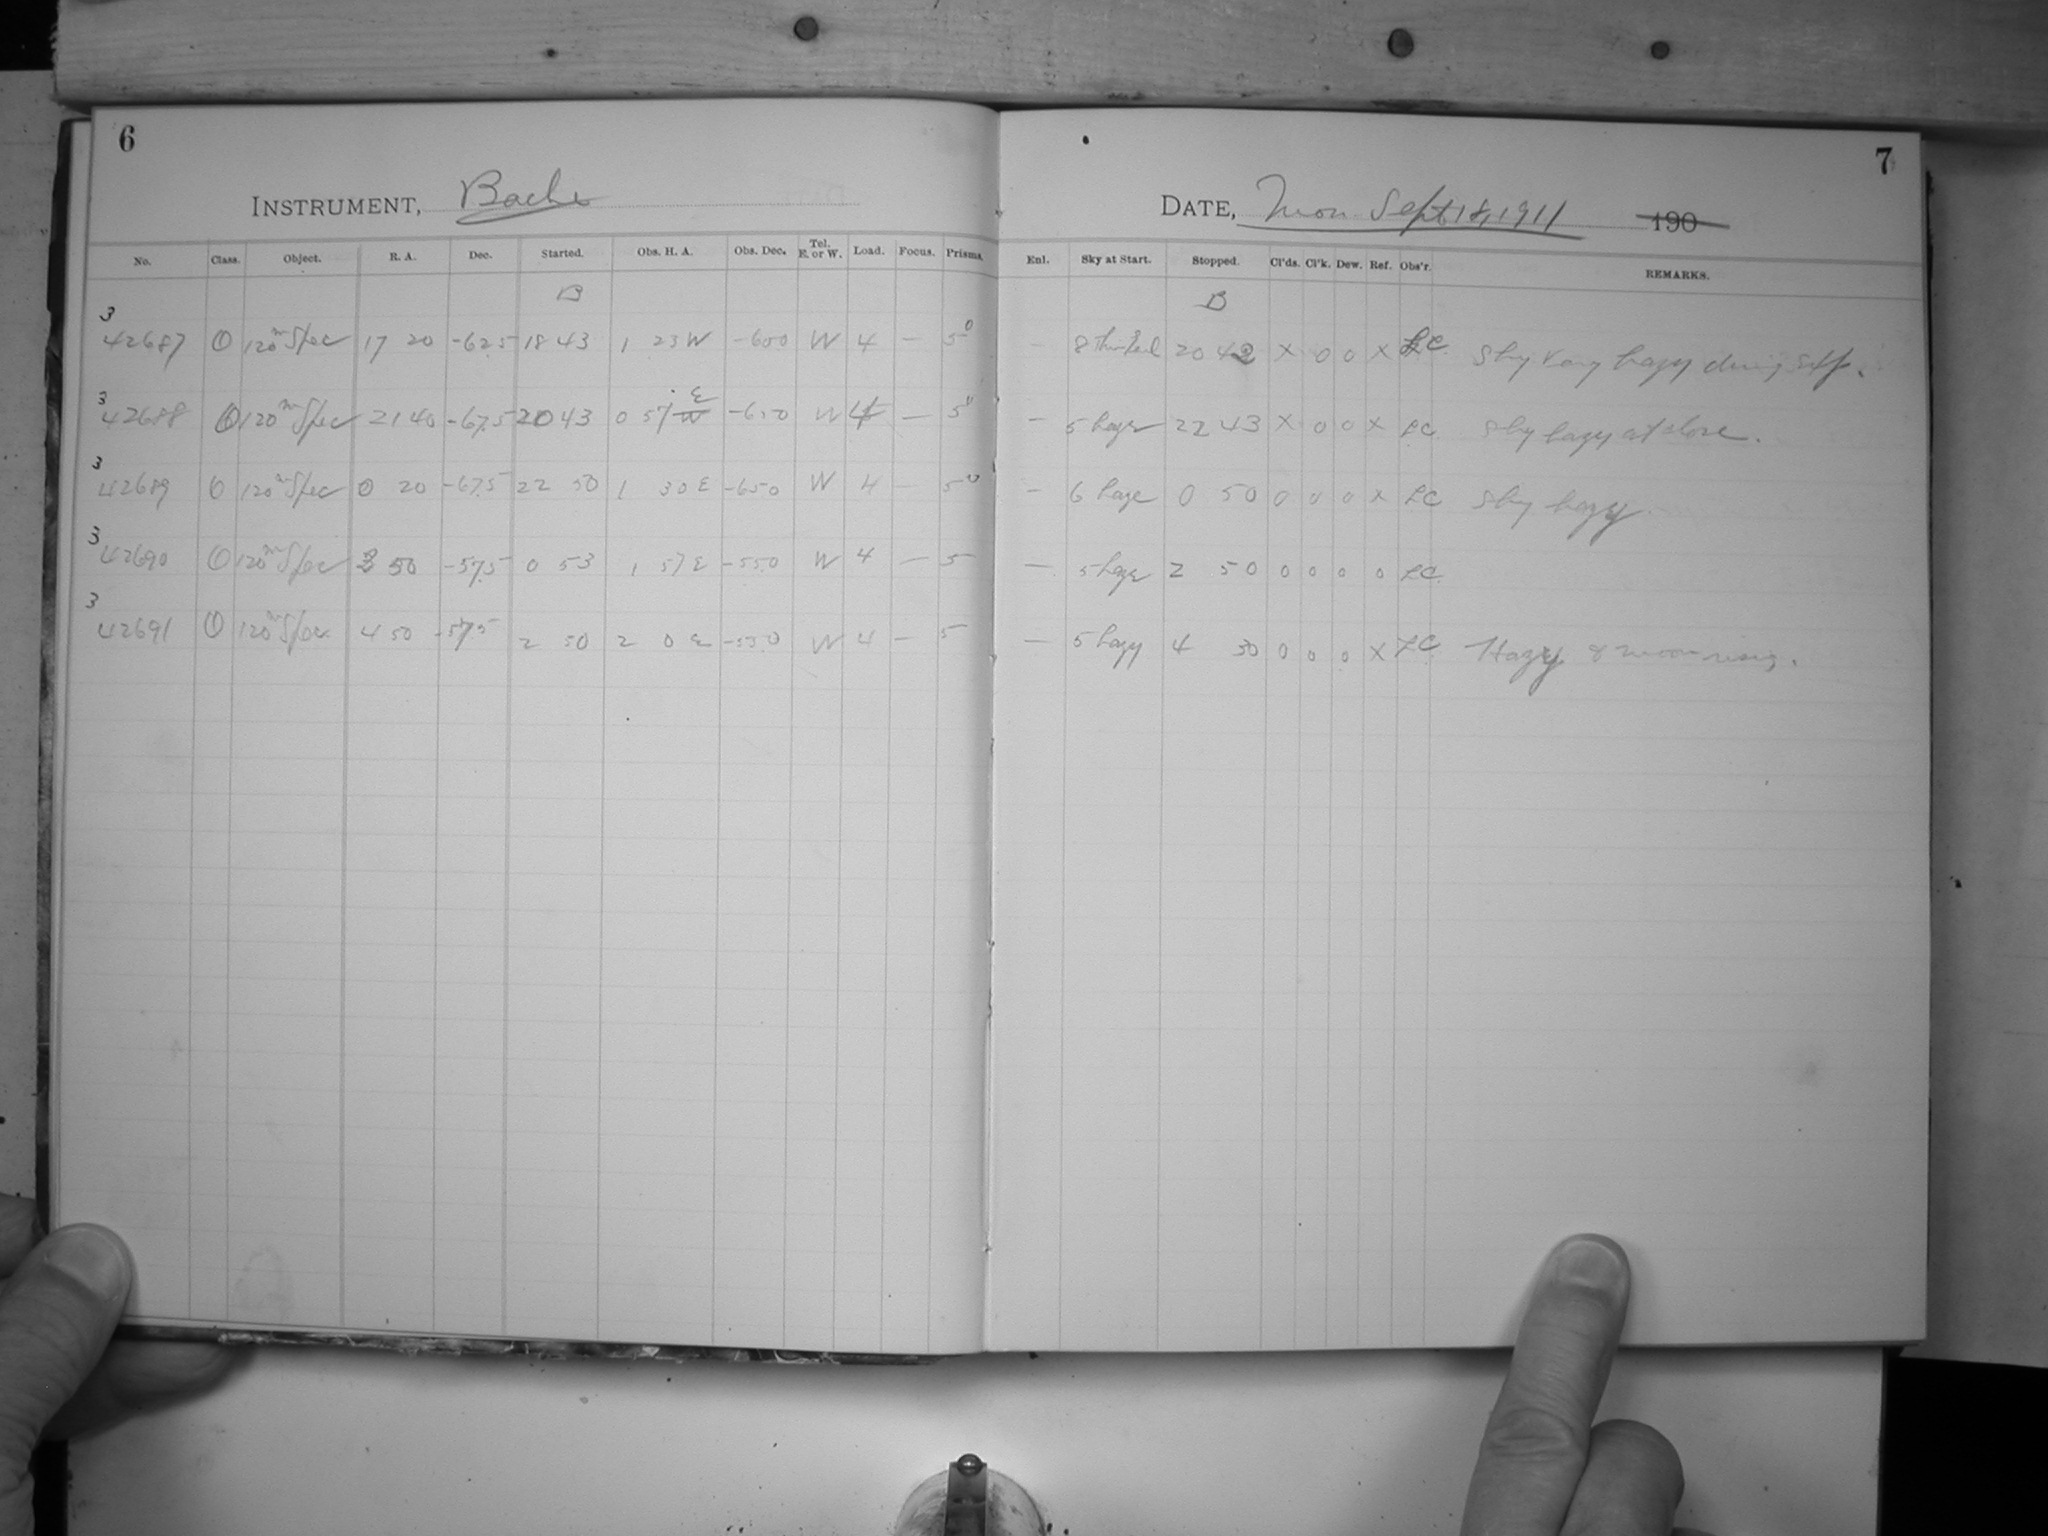 6
INSTRUMENT, Bache
No. Class. Object. R. A. Dec. Started. Obs. H. A. Obs. Dec. Tel. E. or W. Load. Focus. Prisms.
B
3
42687 O 120m Spec 17 20 -62.5 18 43 1 23 W -60 0 W 4 — 5
3
42688 O 120m Spec 21 40 -67.5 20 43 0 57 E W -65 0 W 4 — 5
3
42689 O 120m Spec 0 20 -67.5 22 50 1 30 E -65 0 W 4 — 5
3
42690 O 120m Spec 50 -57.5 0 53 1 57 E -55.0 W 4 — 5
3
42691 O 120m Spec 4 50 -57.5 2 50 2 0 E -55.0 W 4 — 5
7
DATE, Mon Sept 18, 1911 190
Enl. Sky at Start. Stopped. Cl'ds. Cl'k. Dew. Ref. Obs'r. REMARKS.
B
— 8 20 42 X 0 0 X LC Sky very hazy during exp.
— 5 haze 22 43 X 0 0 X LC Sky hazy at close.
— 6 haze 0 50 0 0 0 x LC Sky hazy
— 5 haze 2 50 0 0 0 0 LC
— 5 hazy 4 30 0 0 0 X LC Hazy & moon rising.